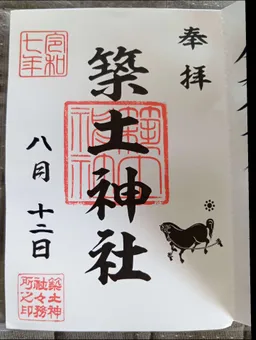 奉拝
築土神社
令和
七年
八月十二日
築土神
社々務
所之印